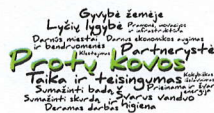 Gyvybė žemėje
Lyčių lygybė Pramonė, inovacijos ir infrastruktūra
Darnūs miestai ir bendruomenės
Darnus ekonomikos augimas
Klestėjimas Partnerystė
Protų kovos
Taika ir teisingumas Kokybiškas išsilavinimas
Sumažinti badą Prieinama ir švari energija
Sumažinti skurdą Švarus vanduo ir higiena
Deramas darbas